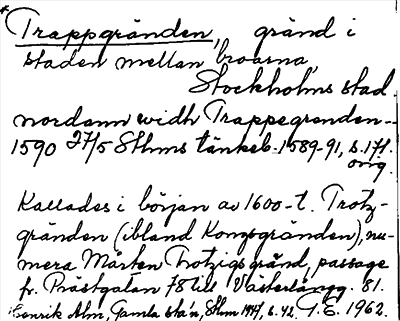 Trappgränden, gränd i
staden mellan broarna,
Stockholms stad.
nordann widh Trappegrenden--
1590 27/5 Sthms tänkeb. 1589-91, s. 171.
orig.
Kallades i början av 1600-t. Trotz-
gränden (ibland Kongsgränden), nu-
mera Mårten Trotzigs gränd, passage
fr. Prästgatan 78 till Västerlångg. 81.
Henrik Alm, Gamla sta'n, Sthm 1947, s. 42, G.E. 1962.